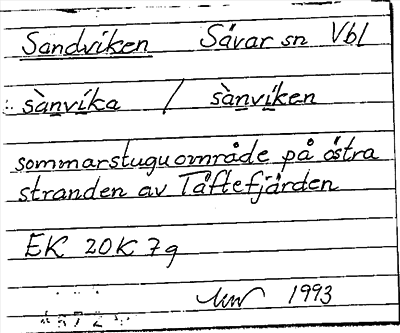 Sandviken Sävar sn Vbl
sànvika / sànviken
sommarstuguområde på östra
stranden av Täftefjärden
EK 20K 7g
1993